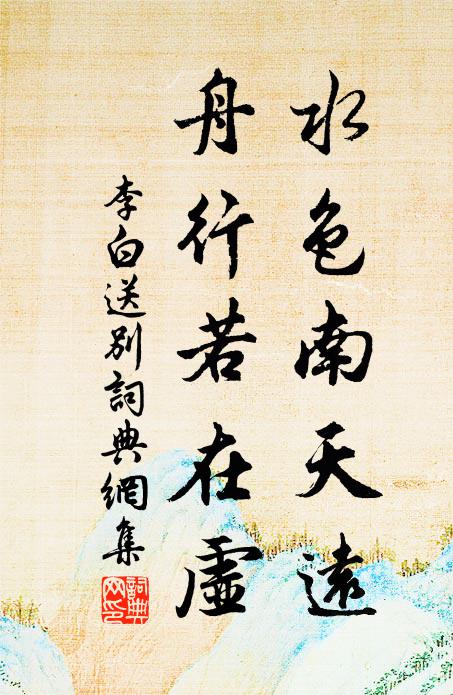 水色南天遠
舟行若在虛
李白送別詞典網集
詞典网印